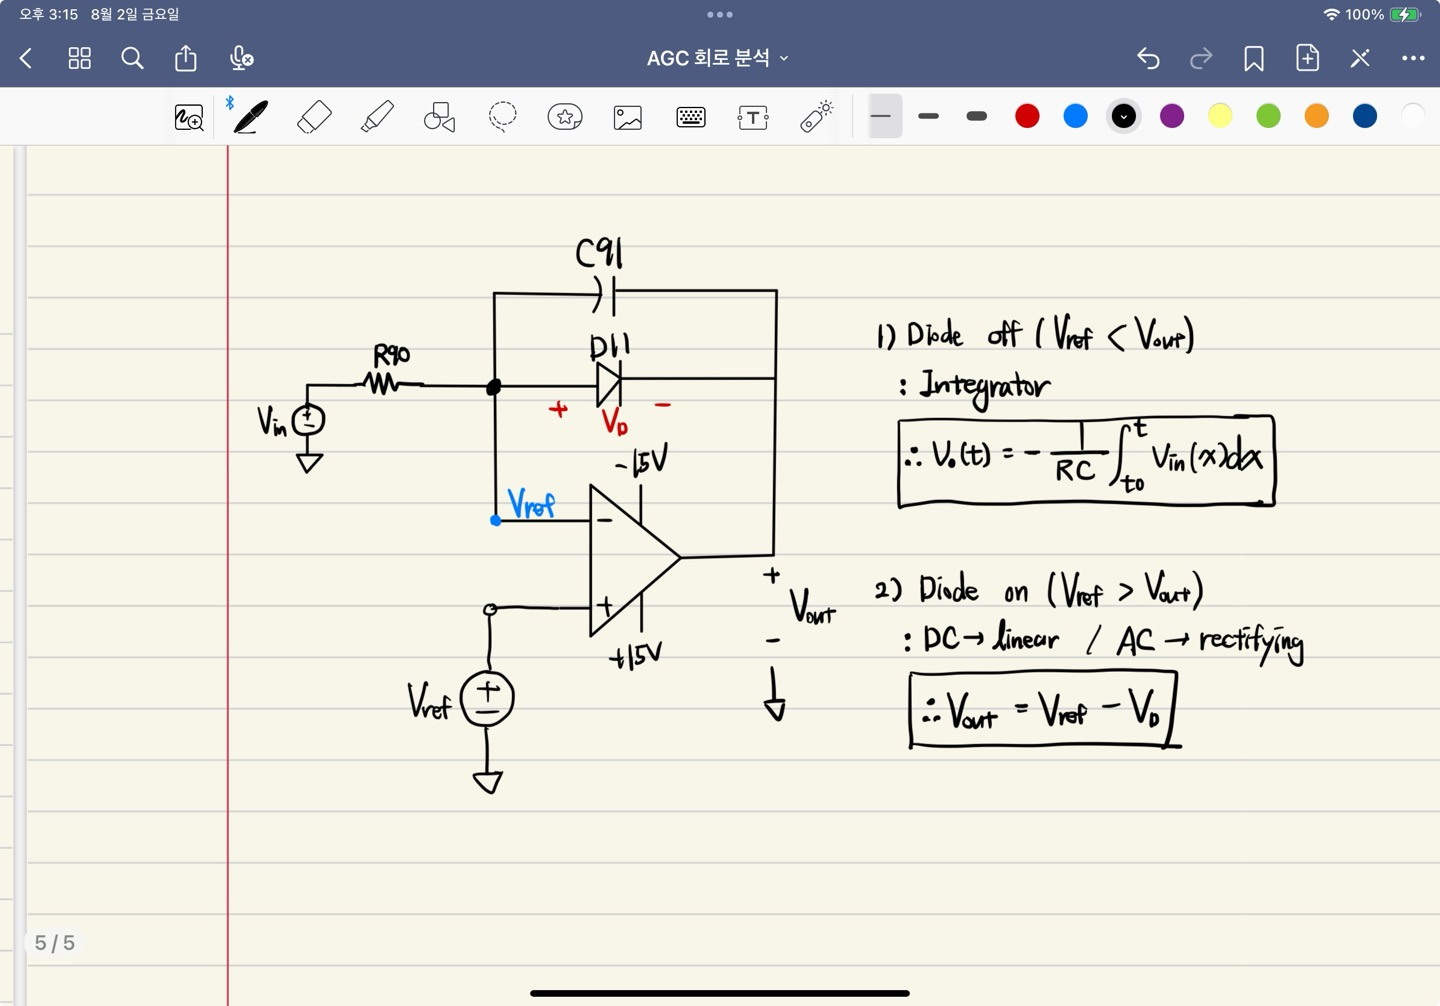 오후 3:15 8월 2일 금요일
100%
AGC 회로 분석
T
C91
R90
D11
Vin
+
-
+ VD -
-15V
Vref
-
+
+15V
+
Vout
-
Vref
+
-
1) Diode off (Vref < Vout)
: Integrator
∴ Vo(t) = - 1/RC ∫t0^t Vin(x)dx
2) Diode on (Vref > Vout)
: DC → linear / AC → rectifying
∴ Vout = Vref - VD
5 / 5